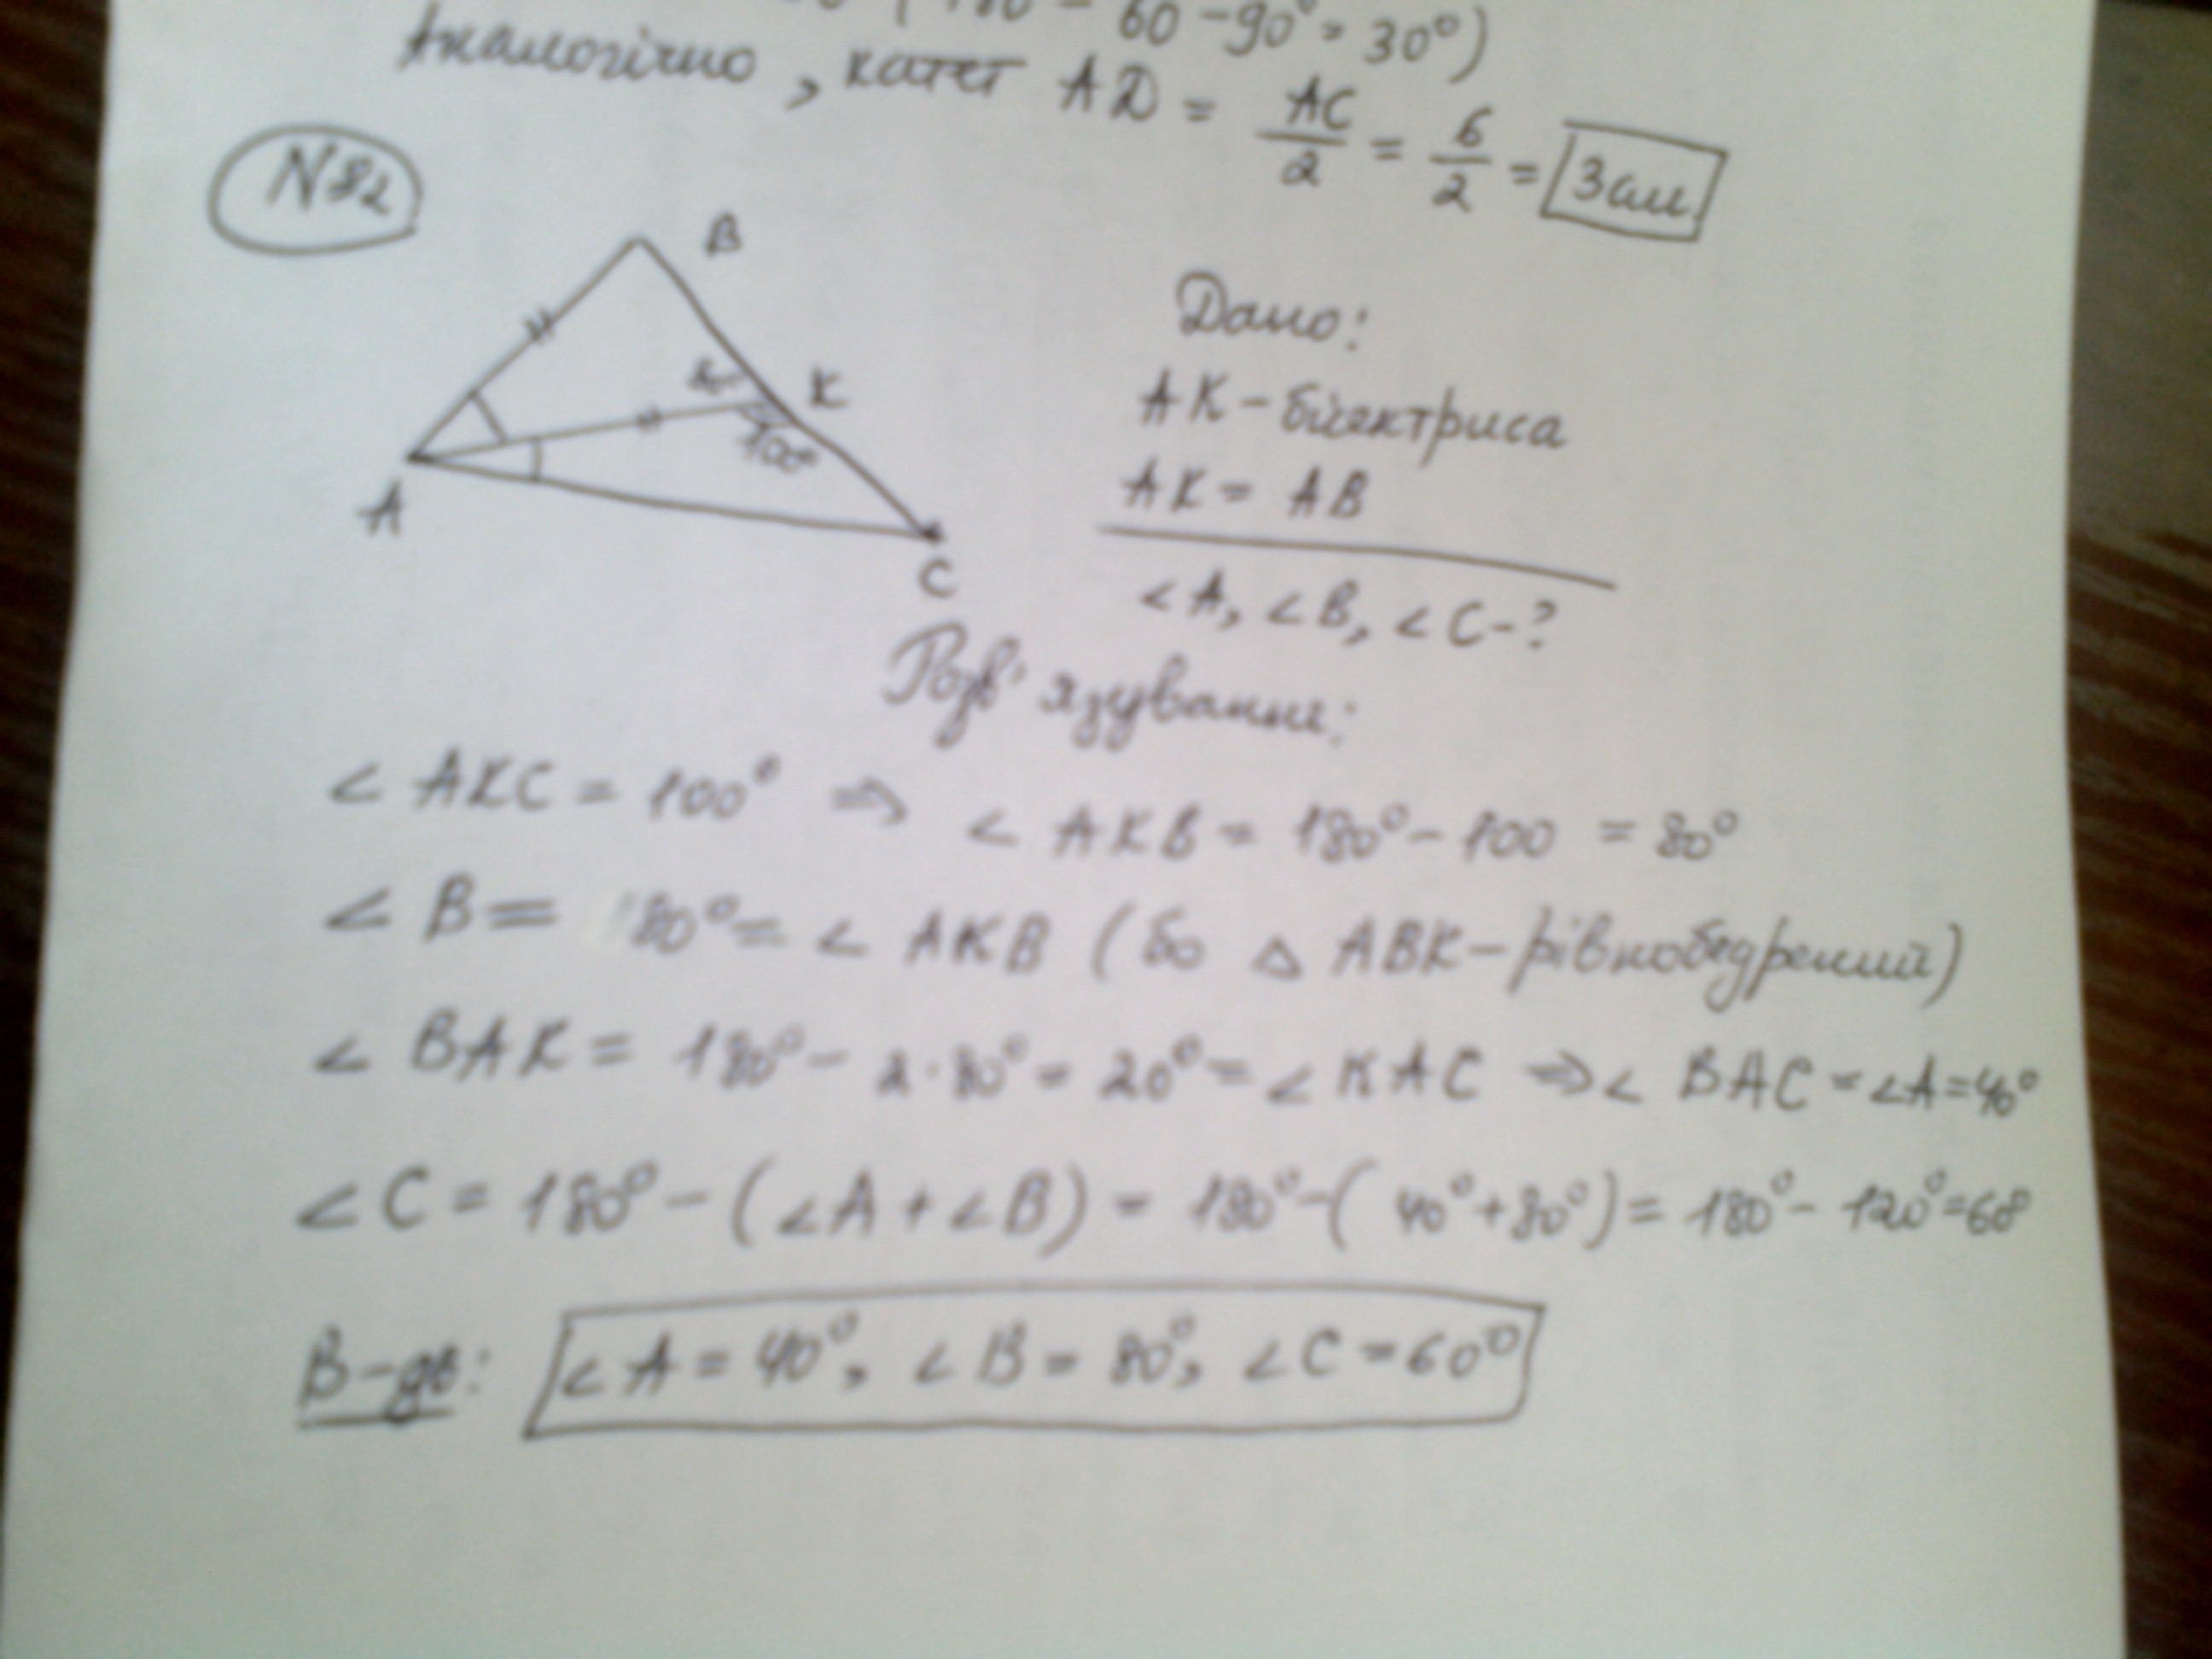 180 - 60 - 90° = 30°)
Аналогічно, катет АД = АС/2 = 6/2 = 3 см.
N82
B
K
100°
A
C
Дано:
AK - бісектриса
AK = AB
∠A, ∠B, ∠C - ?
Розв'язування:
∠AKC = 100° ⇒ ∠AKB = 180° - 100 = 80°
∠B = 80° = ∠AKB (бо △ABK - рівнобедрений)
∠BAK = 180° - 2·80° = 20° = ∠KAC ⇒ ∠BAC = ∠A = 40°
∠C = 180° - (∠A + ∠B) = 180° - (40° + 80°) = 180° - 120° = 60°
В-дь: ∠A = 40°, ∠B = 80°, ∠C = 60°